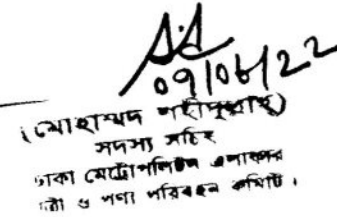 ০৭|০৬|২২
(মোহাম্মদ শহীদুল্লাহ)
সদস্য সচিব
ঢাকা মেট্রোপলিটন এলাকার
ও পণ্য পরিবহন কমিটি।